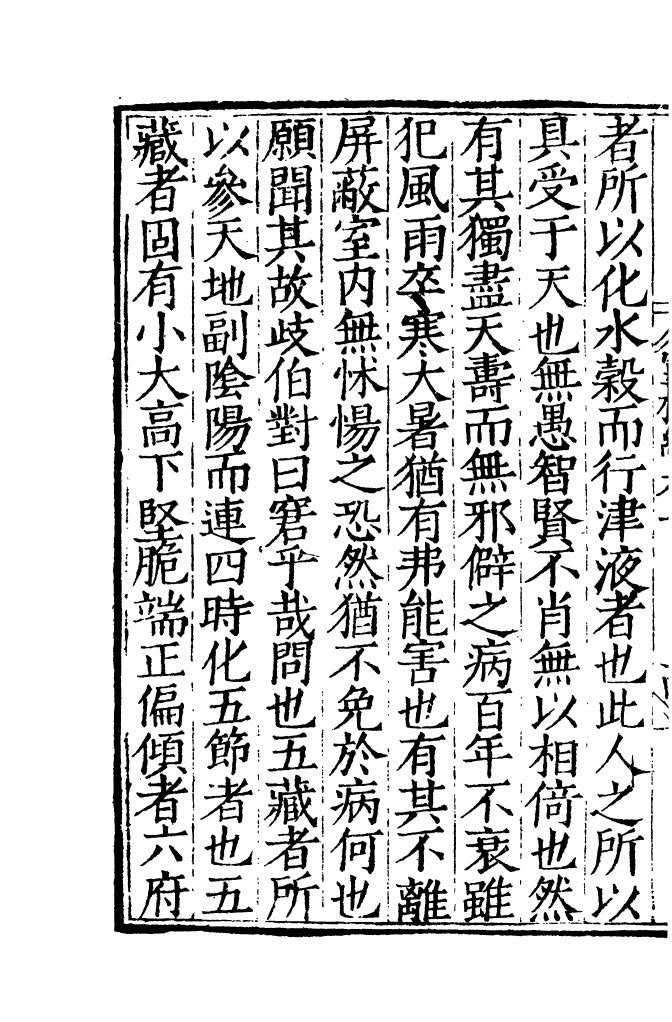 者所以化水穀而行津液者也此人之所以
具受于天也無愚智賢不肖無以相倚也然
有其獨盡天壽而無邪僻之病百年不衰雖
犯風雨卒寒大暑猶有弗能害也有其不離
屏蔽室內無怵惕之恐然猶不免於病何也
願聞其故歧伯對曰窘乎哉問也五藏者所
以參天地副陰陽而連四時化五節者也五
藏者固有小大高下堅脆端正偏傾者六府